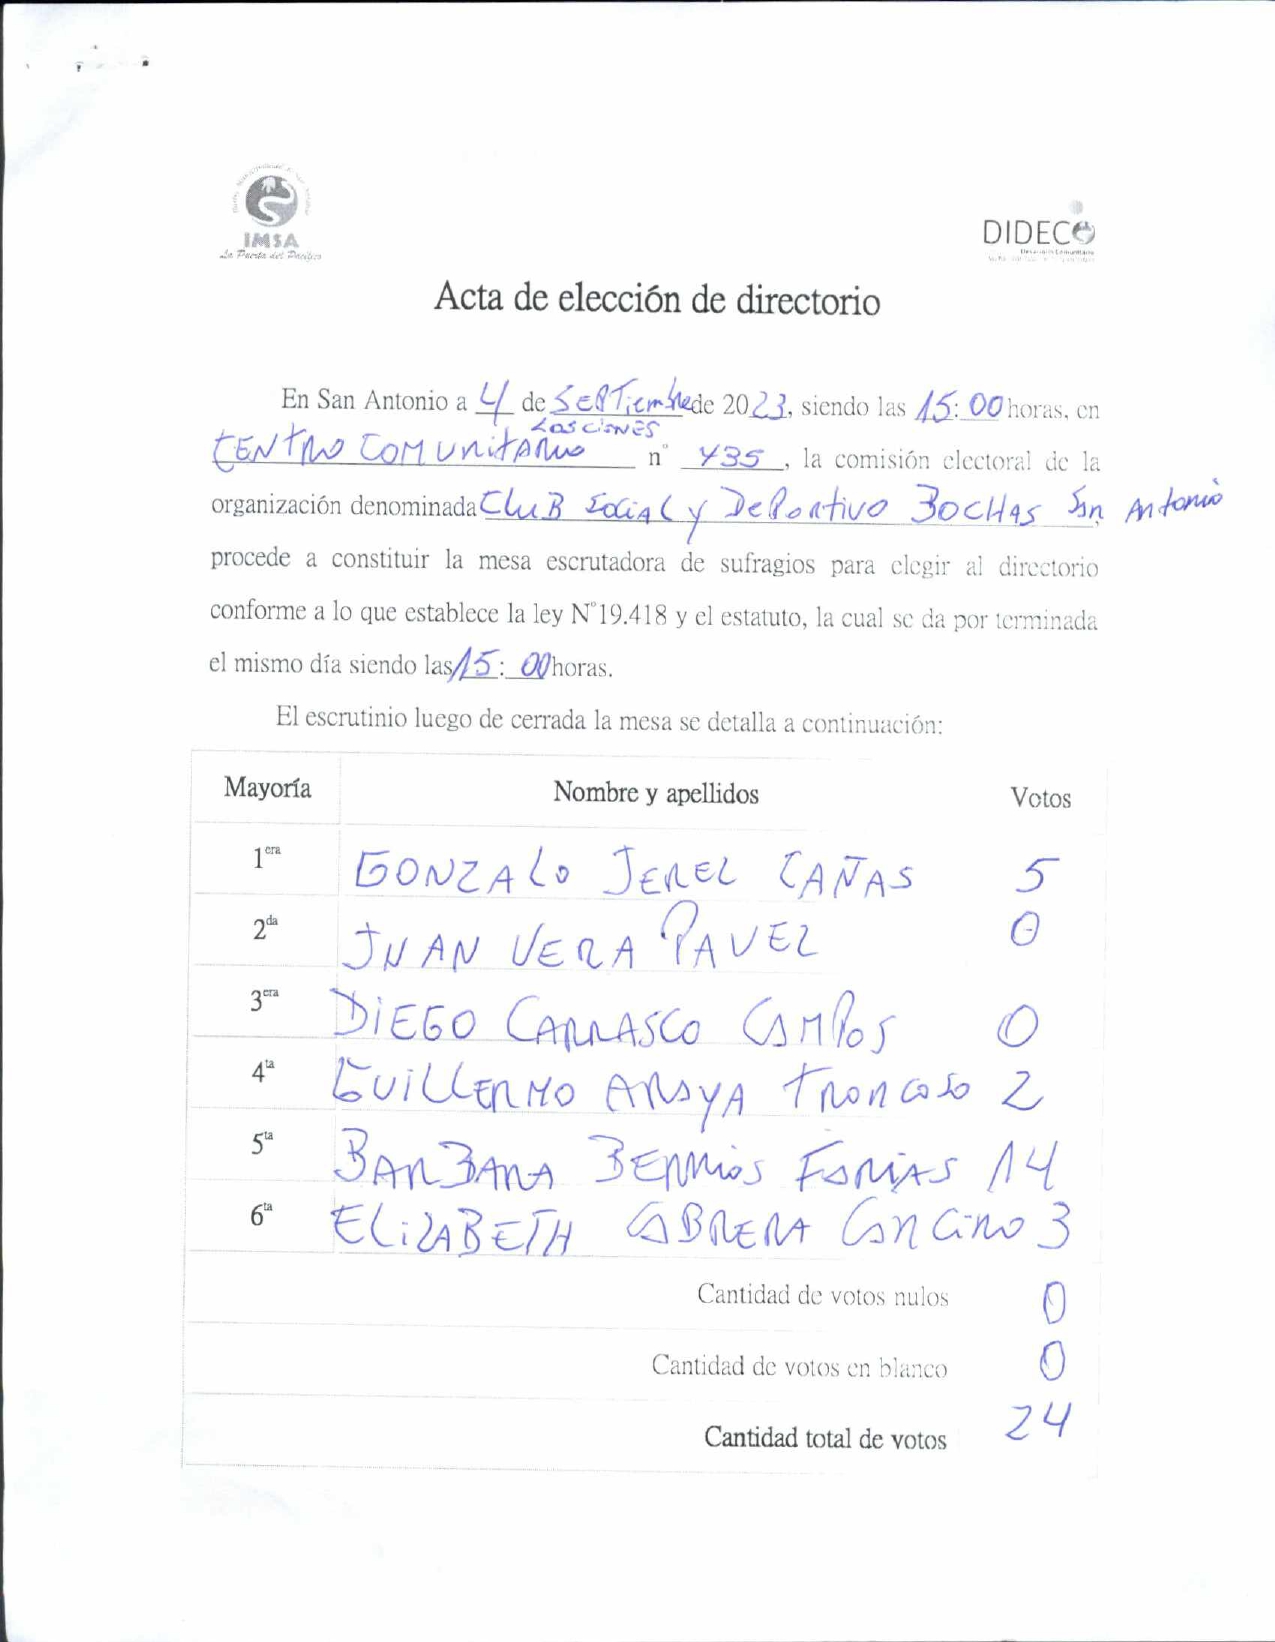 IMSA
La Puerta del Pacífico
DIDECO
Acta de elección de directorio
En San Antonio a 4 de SEPTiembre de 2023, siendo las 15:00 horas, en
CENTRO COMUNITARIO n° 435, la comisión electoral de la
organización denominada CLUB SOCIAL y DEPORTIVO BOCHAS San Antonio,
procede a constituir la mesa escrutadora de sufragios para elegir al directorio
conforme a lo que establece la ley N°19.418 y el estatuto, la cual se da por terminada
el mismo día siendo las 15:00 horas.
El escrutinio luego de cerrada la mesa se detalla a continuación:
Mayoría Nombre y apellidos Votos
1era GONZALO JEREZ CAÑAS 5
2da JUAN VERA PAVEZ 0
3era DIEGO CARRASCO CAMPOS 0
4ta GUILLERMO ARAYA TRONCOSO 2
5ta BARBARA BERRIOS FARIAS 14
6ta ELIZABETH CABRERA CANCINO 3
Cantidad de votos nulos 0
Cantidad de votos en blanco 0
Cantidad total de votos 24